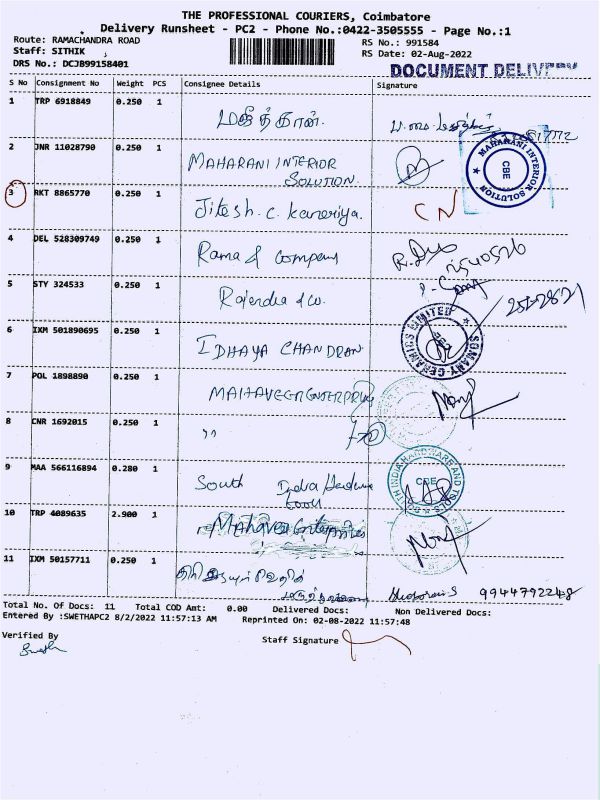 THE PROFESSIONAL COURIERS, Coimbatore
Delivery Runsheet - PC2 - Phone No.:0422-3505555 - Page No.:1
Route: RAMACHANDRA ROAD
RS No.: 991584
Staff: SITHIK
RS Date: 02-Aug-2022
DRS No.: DCJB99158401
DOCUMENT DELIVERY
S No Consignment No Weight PCS Consignee Details Signature
1 TRP 6918849 0.250 1
2 JNR 11028790 0.250 1 MAHARANI INTERIOR
SOLUTION
MAHARANI INTERIOR SOLUTION CBE
3 RKT 8865770 0.250 1 Jitesh. C. Kaneriya. CN
4 DEL 528309749 0.250 1 Rama & Company
5 STY 324533 0.250 1 Rajendra & Co.
6 IXM 501890695 0.250 1 IDHAYA CHANDRAN
SOMANY CERAMICS LIMITED
7 POL 1898890 0.250 1 MAHAVEER ENTERPRISES
8 CNR 1692015 0.250 1 ''
9 MAA 566116894 0.280 1 South India Hardware
Tools
SOUTH INDIA HARDWARE AND TOOLS CBE
10 TRP 4089635 2.900 1 Mahaveer Enterprises
11 IXM 50157711 0.250 1
9944792248
Total No. Of Docs: 11 Total COD Amt: 0.00 Delivered Docs: Non Delivered Docs:
Entered By :SWETHAPC2 8/2/2022 11:57:13 AM Reprinted On: 02-08-2022 11:57:48
Verified By
Staff Signature
Swetha